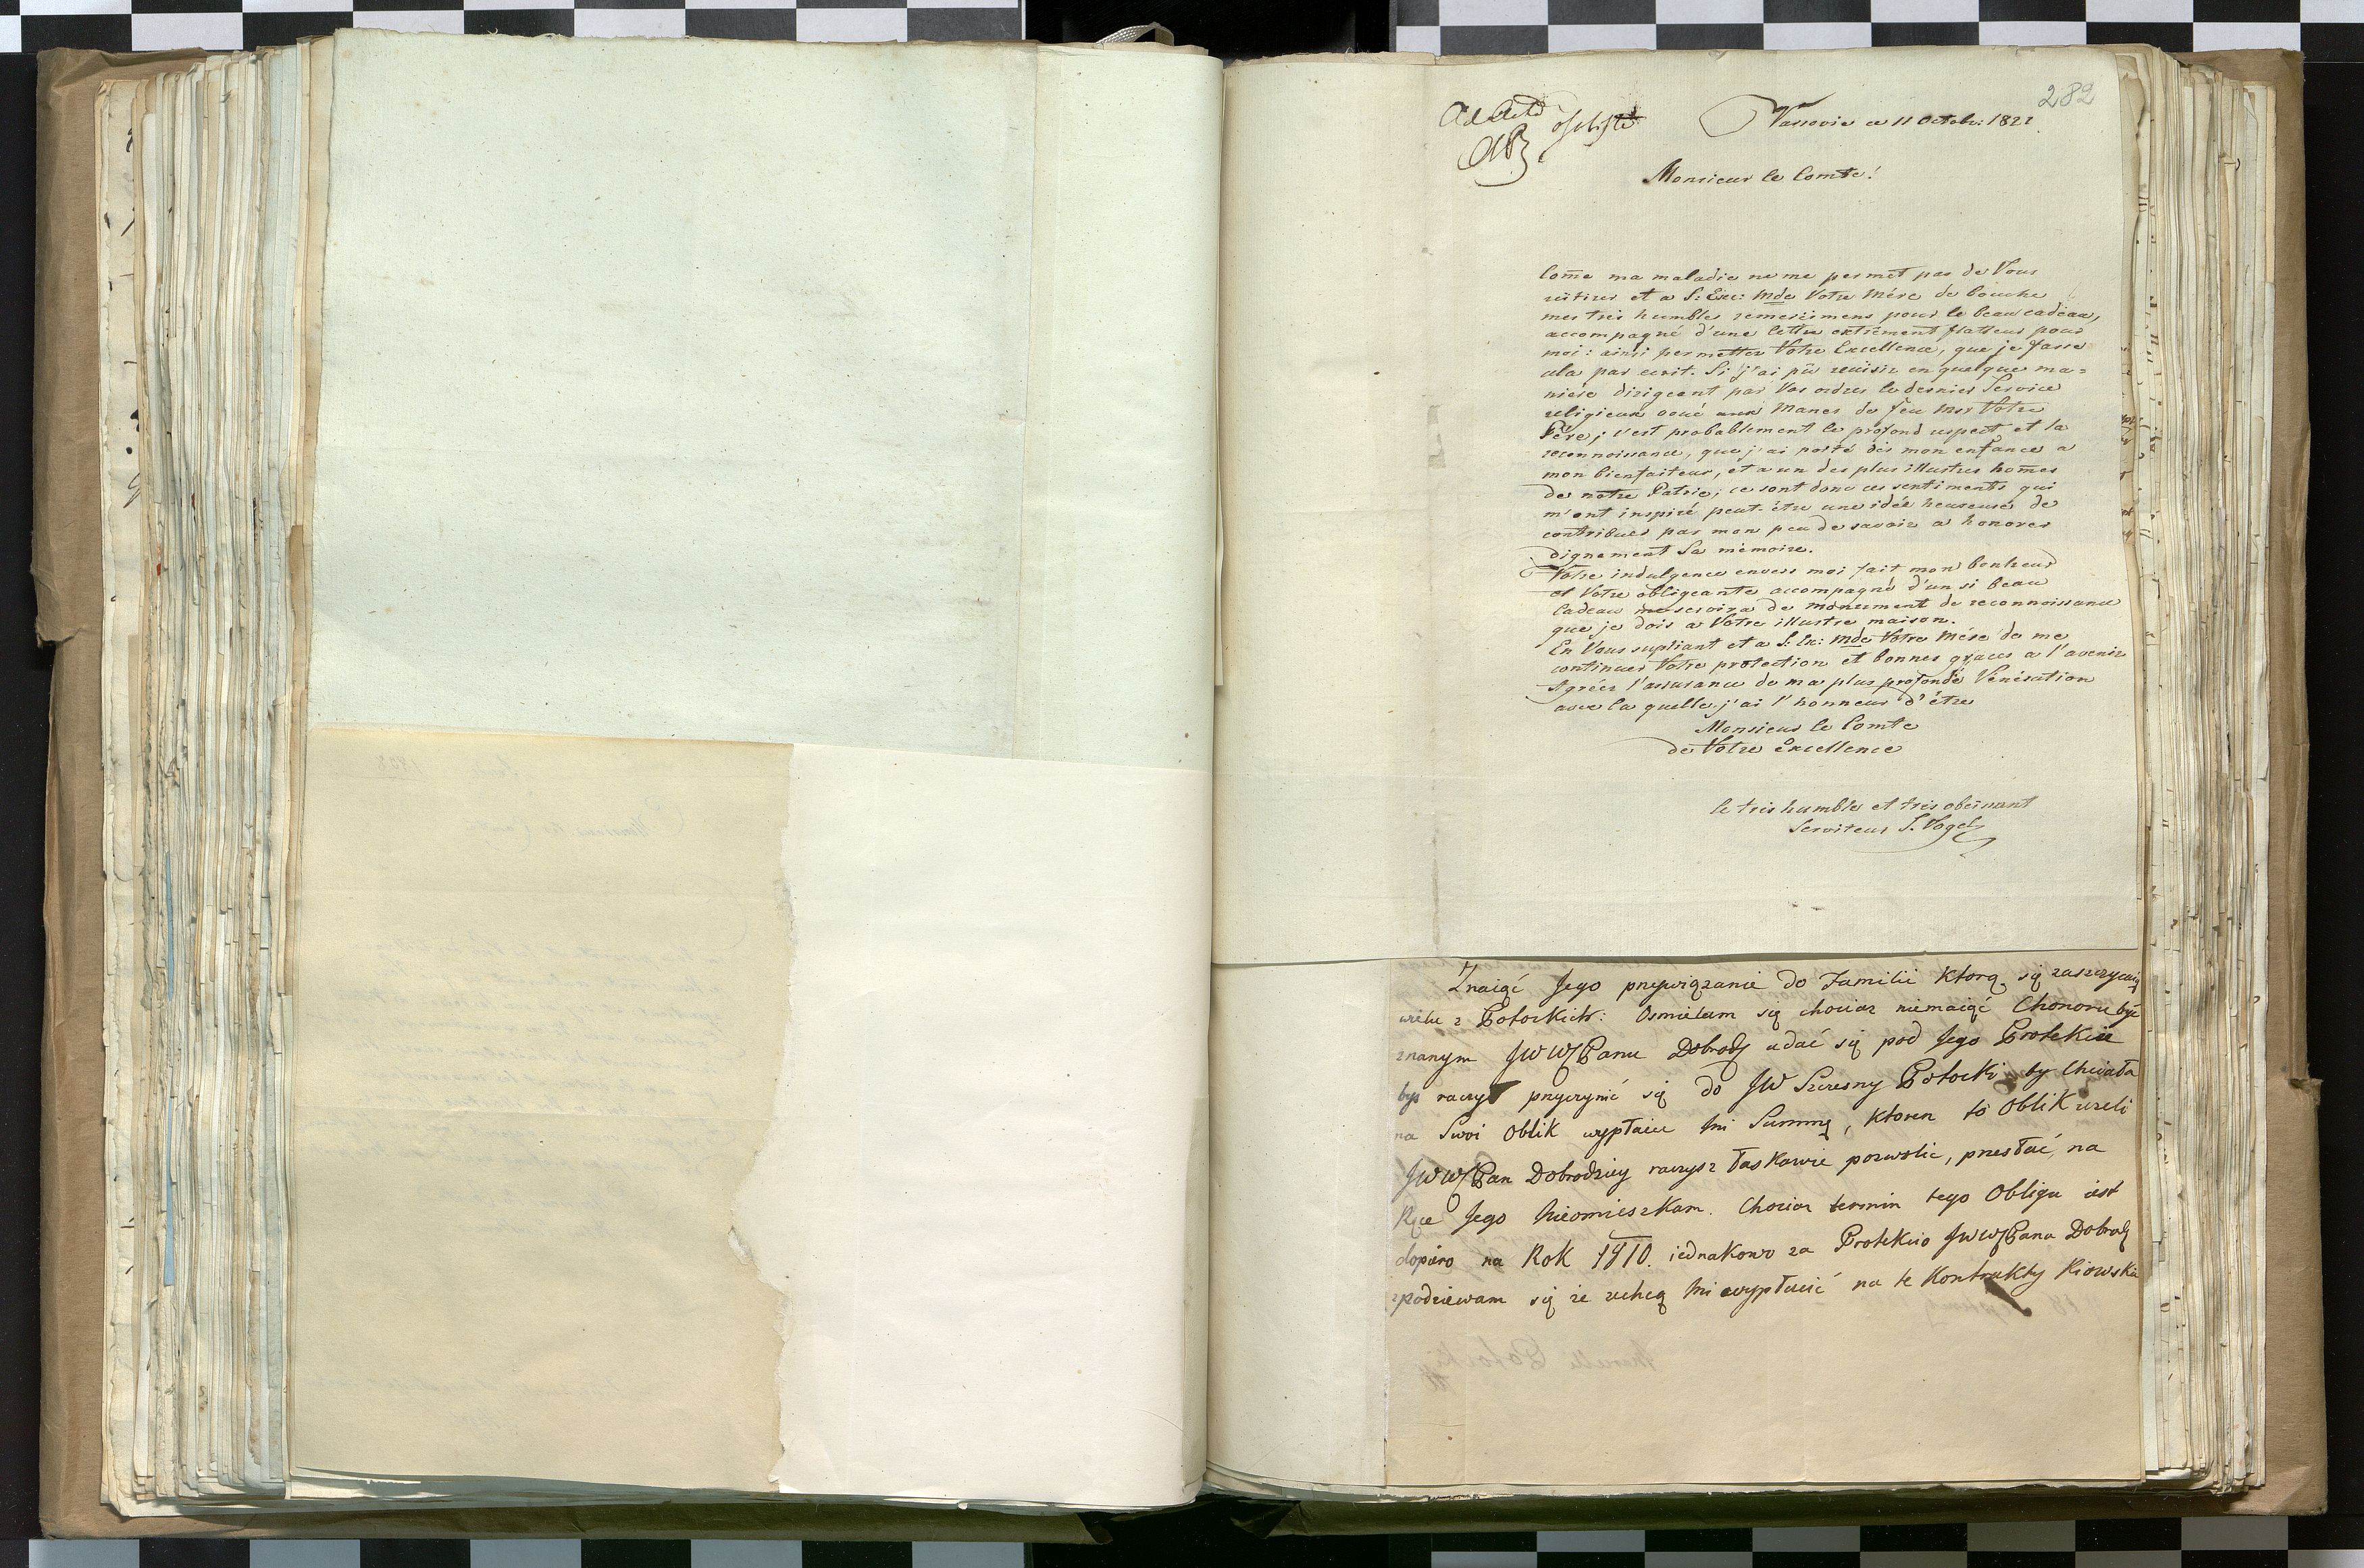 282
Ad Acta
AP.
Varsovie ce 11 Octobr: 1821
Monsieur le Comte!
Com̃e ma maladie ne me permet pas de Vous
et a S: Exc: Mde Votre Mére de bouche
mes tres humbles remercimens pour le beau cadeau,
accompagné d'une lettre extrément flatteus pour
moi: ainsi permettez Votre Excellence, que je fasse
cela par ecrit. Si j'ai pû reüisir en quelque ma=
niére dirigeant par Vos ordres le dernier Service
religieux voué aux Manes de feu Msr Votre
Pére; c'est probablement le profond respect et la
reconnoissance, que j'ai porté dès mon enfance a
mon bienfaiteur, et a un des plus illustres hom̃es
de notre Patrie; ce sont donc ces sentiments qui
m'ont inspiré peut-être une idée heureuse de
contribuer par mon peu de savoir a honorer
dignement Sa mémoire.
Votre indulgence envers moi fait mon bonheur
et Votre obligeante accompagné d'un si beau
Cadeau me servira de monument de reconnoissance
que je dois a Votre illustre maison.
En Vous supliant et a S: Ex: Mde Votre Mére de me
continuer Votre protection et bonnes graces a l'avenir
Agréez l'assurance de ma plus profonde Vénération
avec la quelle j'ai l'honneur d'être
Monsieur le Comte
de Votre Excellence
le tres humble et très obeissant
Serviteur S. Vogel
Znaiąć Jego przywiązanie do Familii Ktorą się zaszczycaią
wielu z Potockich: Osmielam się chociaz niemaiąć Chonoru być
znanym JWW Panu Dobrodz udać się pod Jego Protekcie
bys raczył przyczynić się do JW Szczesny Potocki by Chciała
na Swoi Oblik wypłacić Mi Summę, Ktoren to Oblik iezeli
JWW Pan Dobrodziey raczysz łaskawie pozwolic, przesłać na
Ręce Jego Nieomieszkam. Chociaz termin tego Obligu iest
dopiero na Rok 1810. iednakowo za Protekcio JWW Pana Dobrodz
spodziewam się ze zechcą Mi wypłacić na te Kontrakty Kiowskie